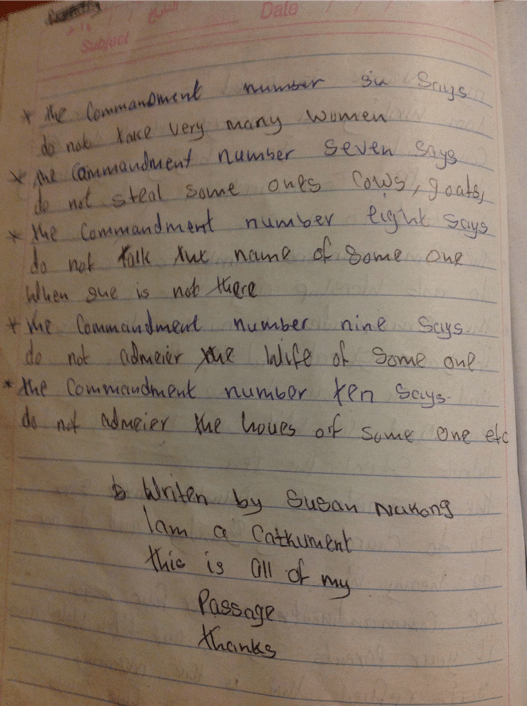 Subject Date
* the Commandment number six Says
do not take very many women
* the Commandment number seven says
do not steal some ones cows, goats,
* the Commandment number eight says
do not talk the name of some one
when she is not there
* the Commandment number nine says
do not admeier the wife of some one
* the Commandment number ten says.
do not admeier the houes of some one etc
Writen by Susan Nakong
I am a Cathument
this is all of my
Passage
thanks